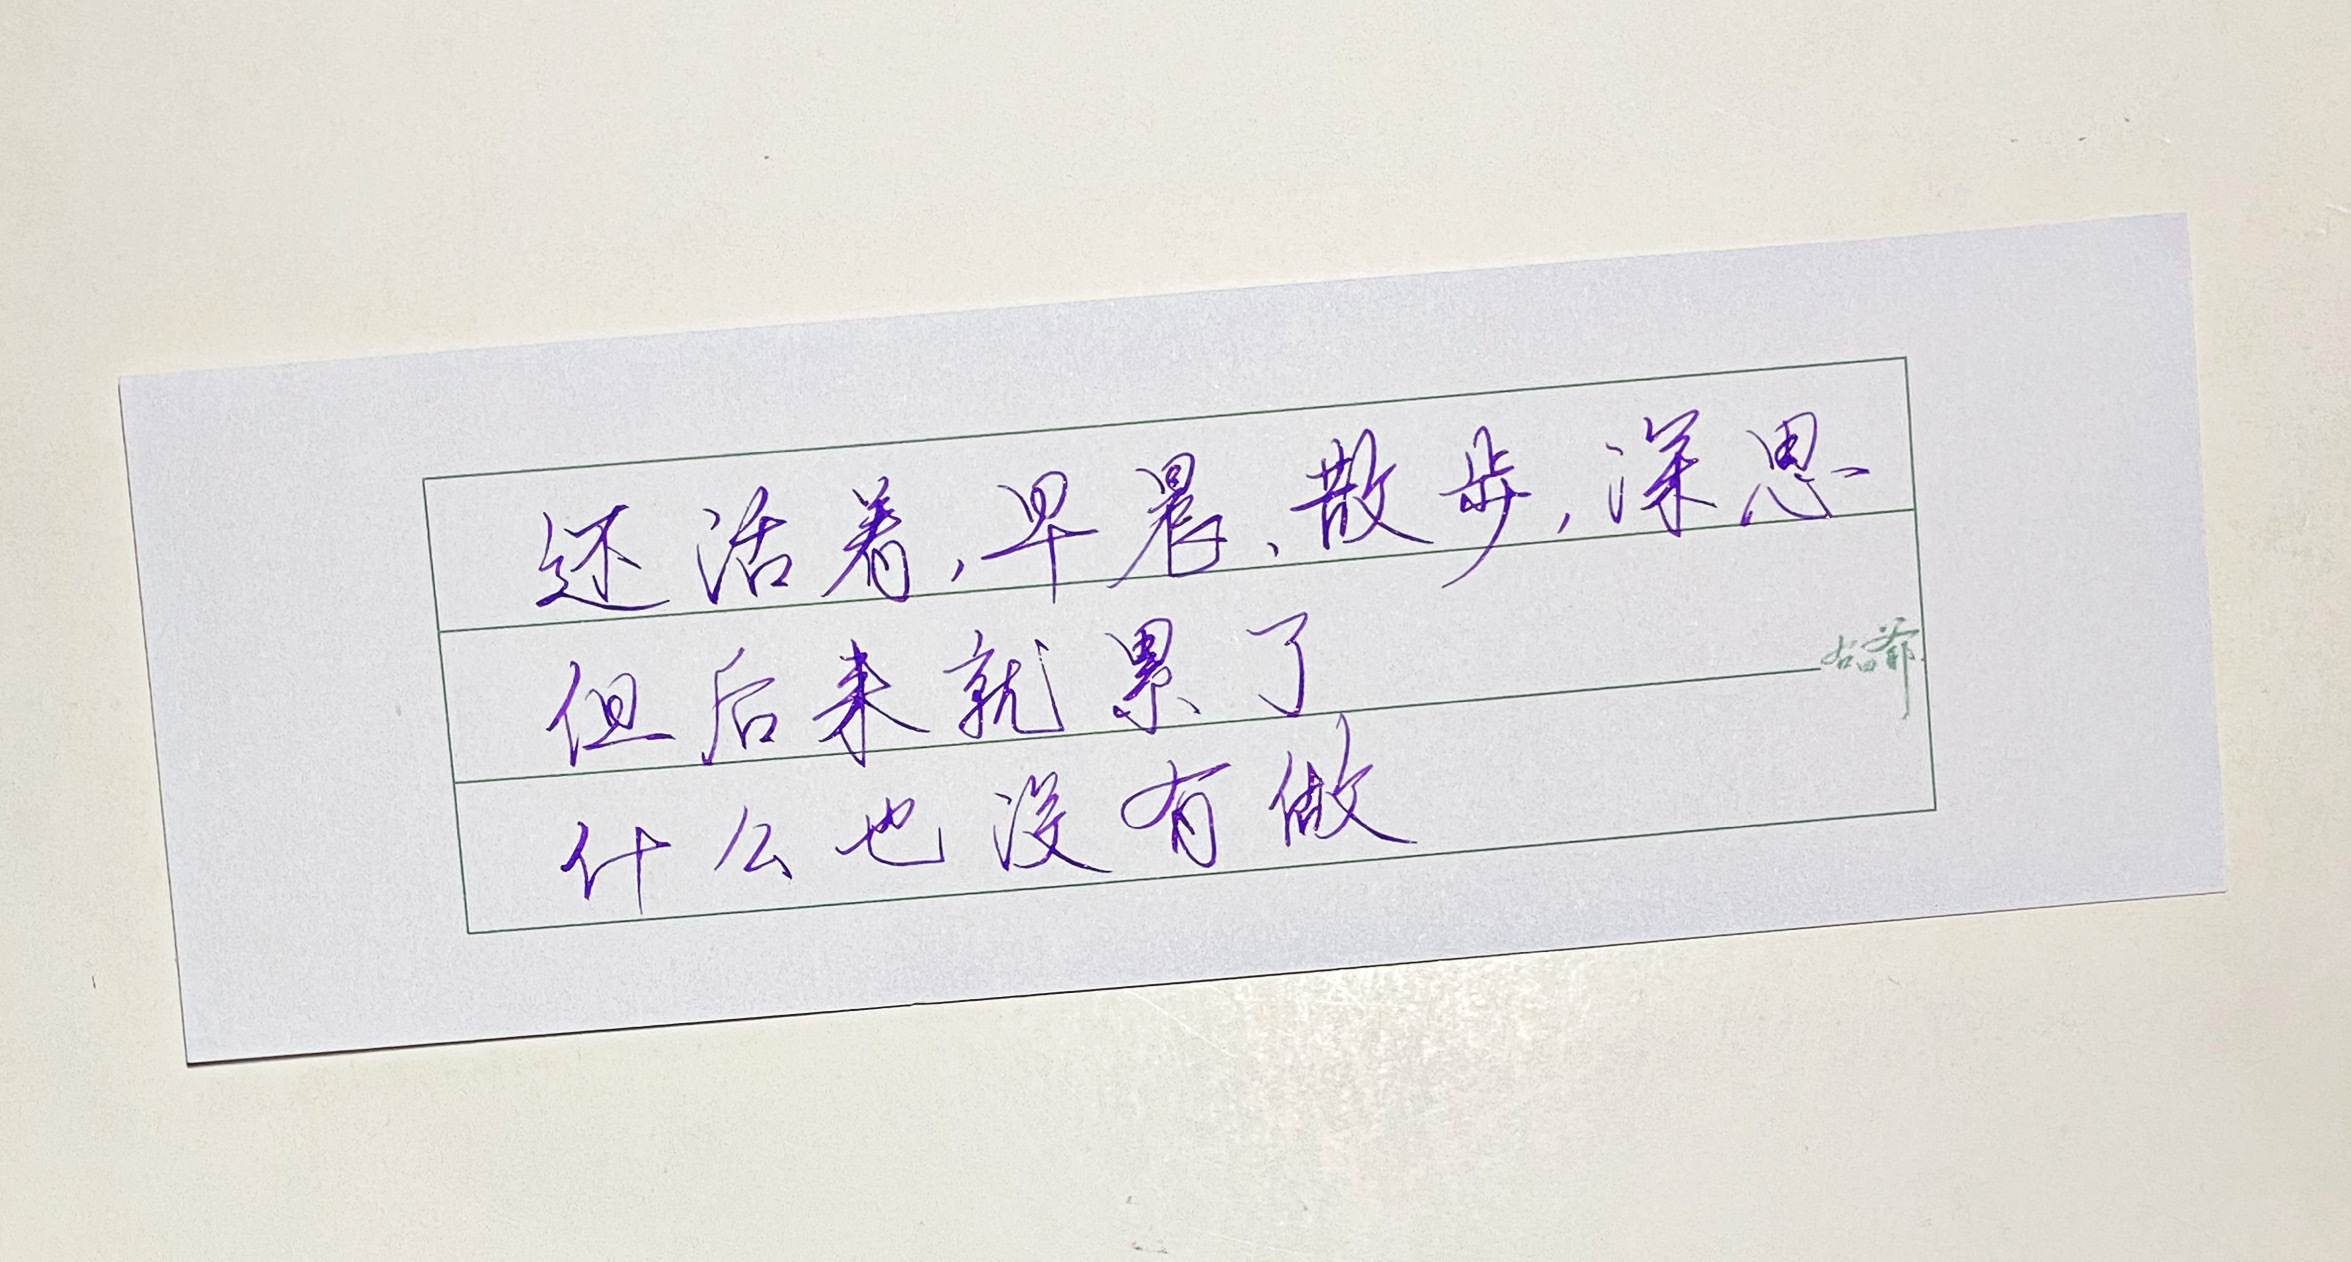 还活着,早晨、散步,深思
但后来就累了
什么也没有做